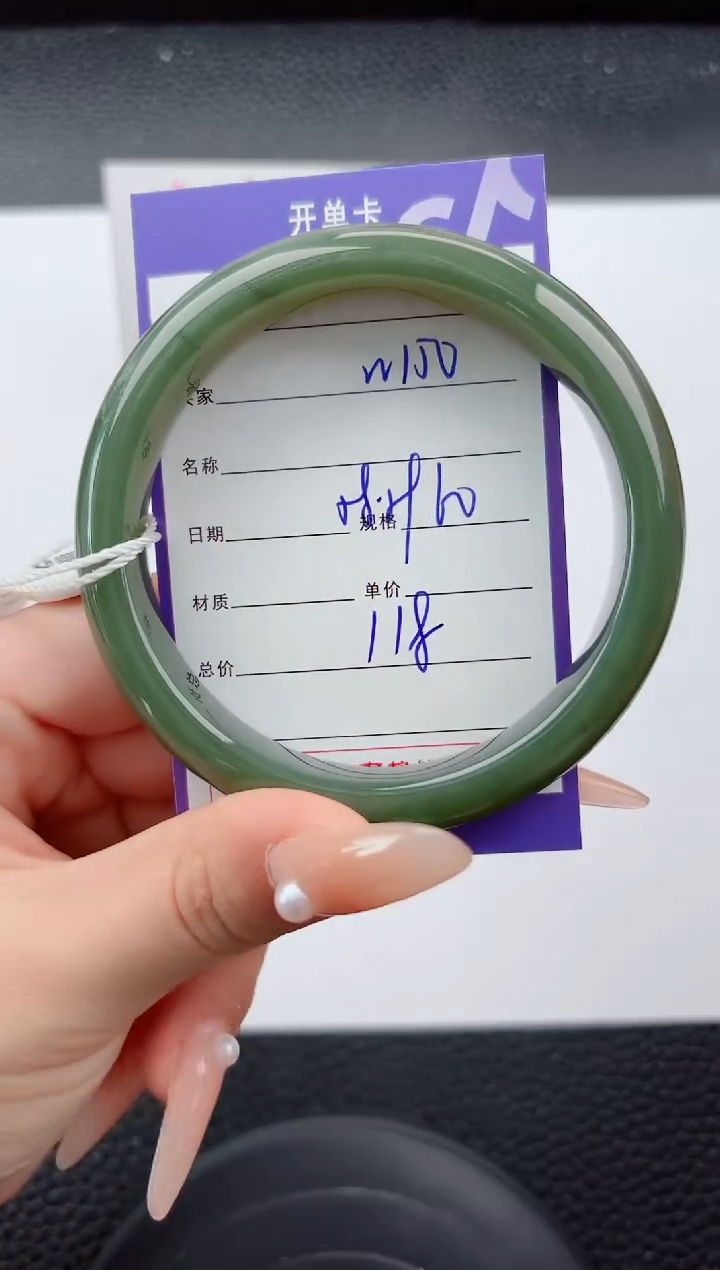 开单卡
家 w150
名称
日期 规格
材质 单价
总价 118